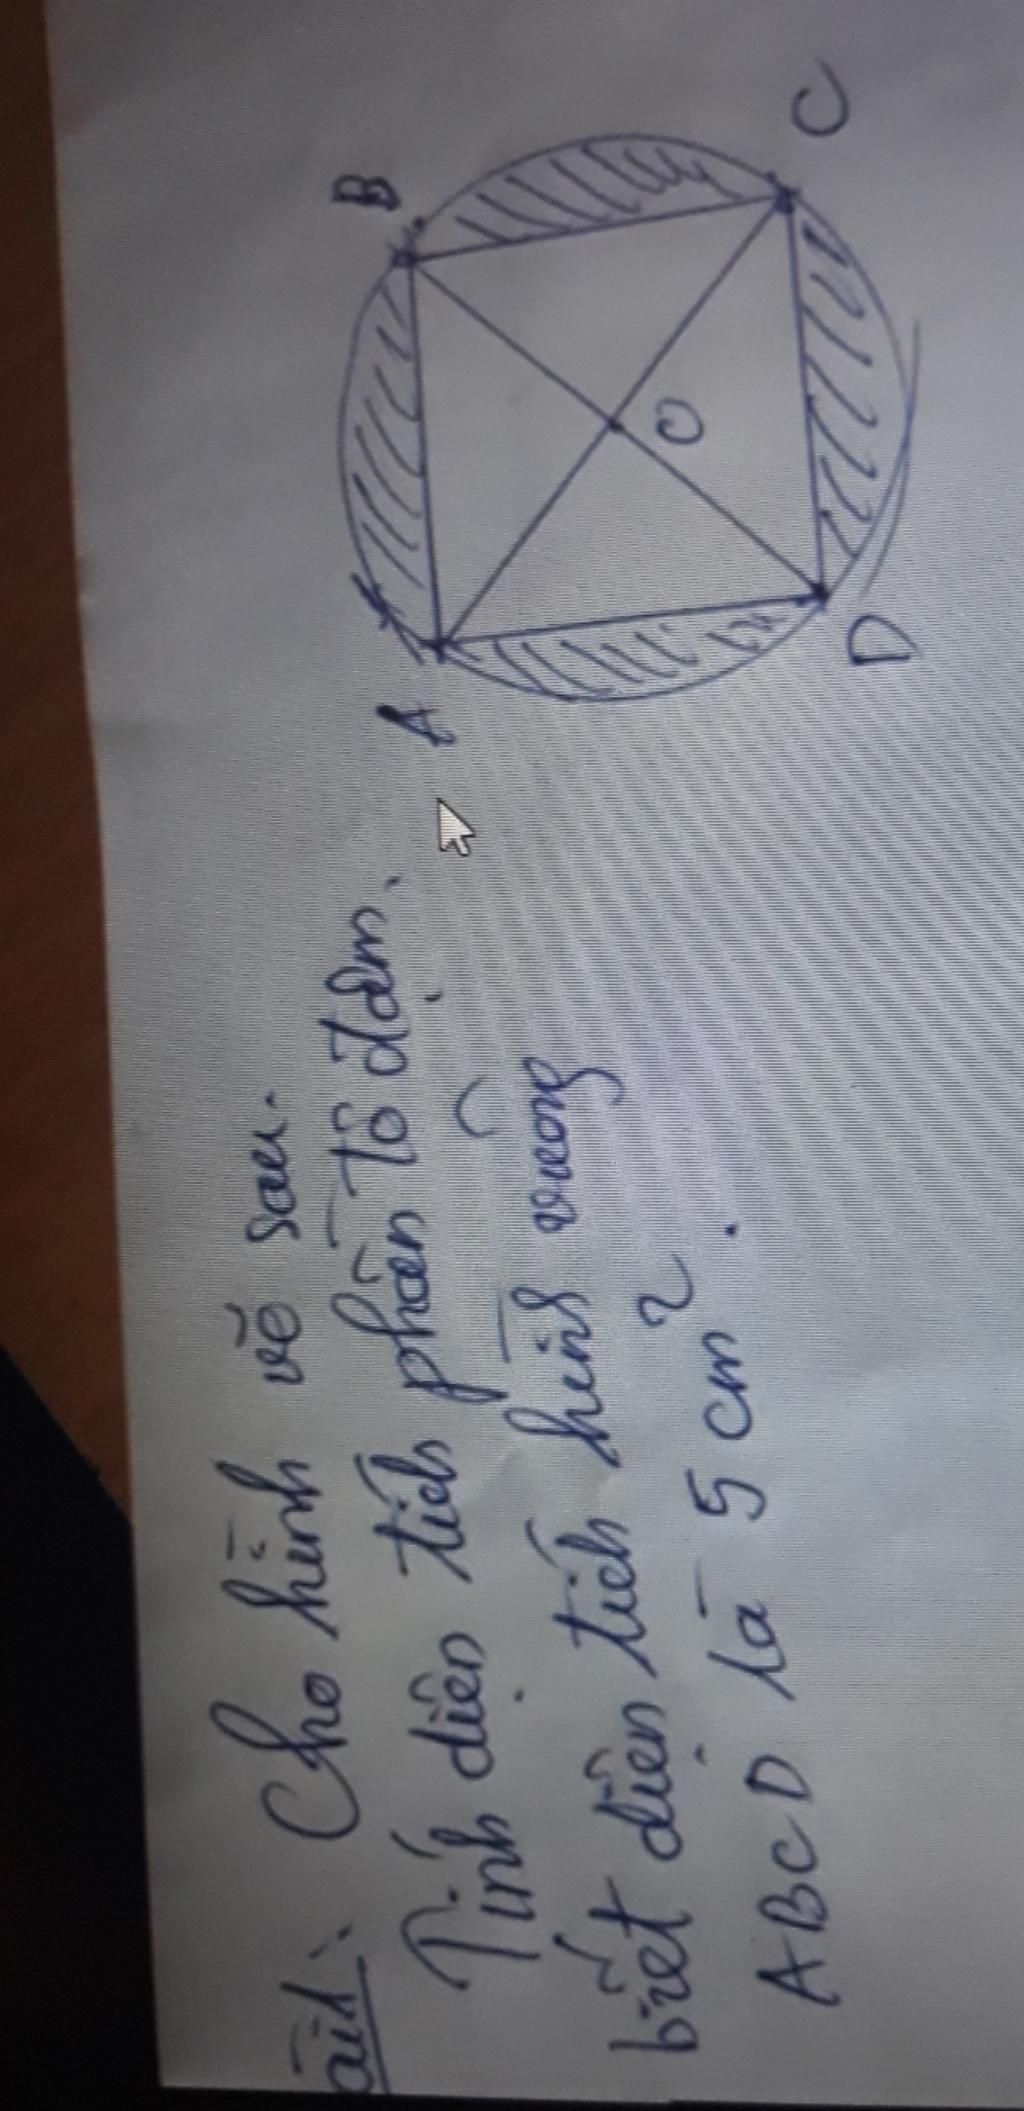 ài 1: Cho hình vẽ sau.
Tính diện tích phần tô đậm.
biết diện tích hình vuông
ABCD là 5 cm².
A
B
C
D
O